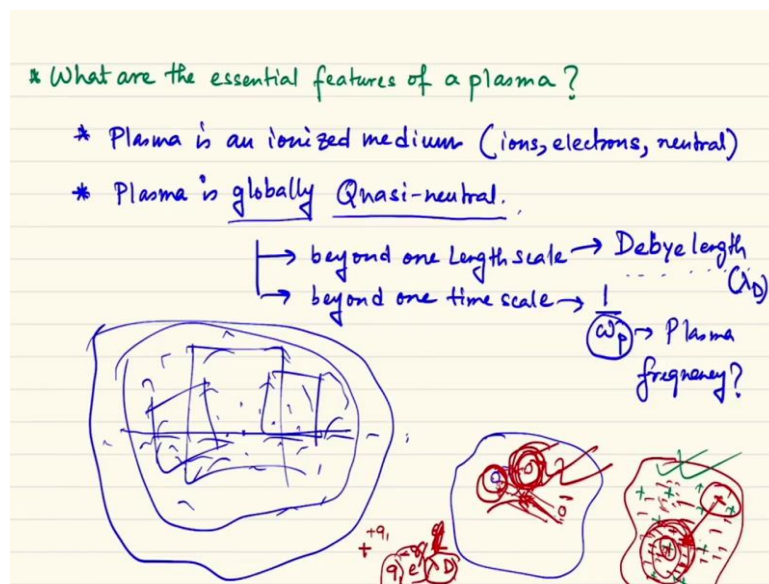 * What are the essential features of a plasma?
* Plasma is an ionized medium (ions, electrons, neutral)
* Plasma is globally Quasi-neutral.
→ beyond one Length scale → Debye length
(λD)
→ beyond one time scale → 1
ωp → Plasma
frequency?
+q1